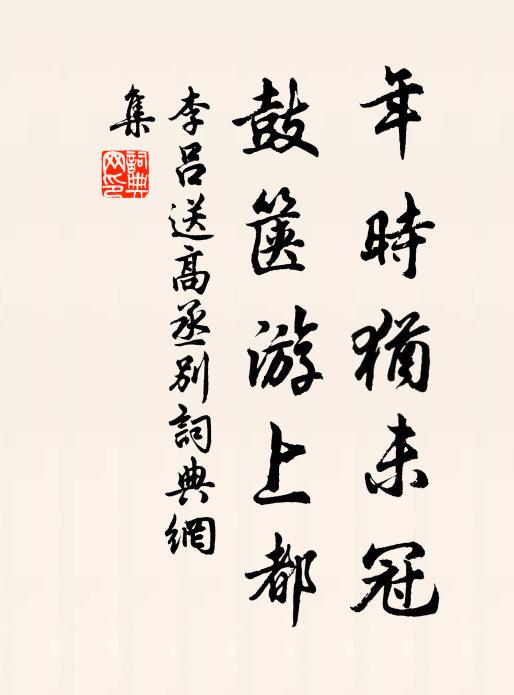 年時猶未冠
鼓篋游上都
李吕送高丞别詞典網
集
詞典網印